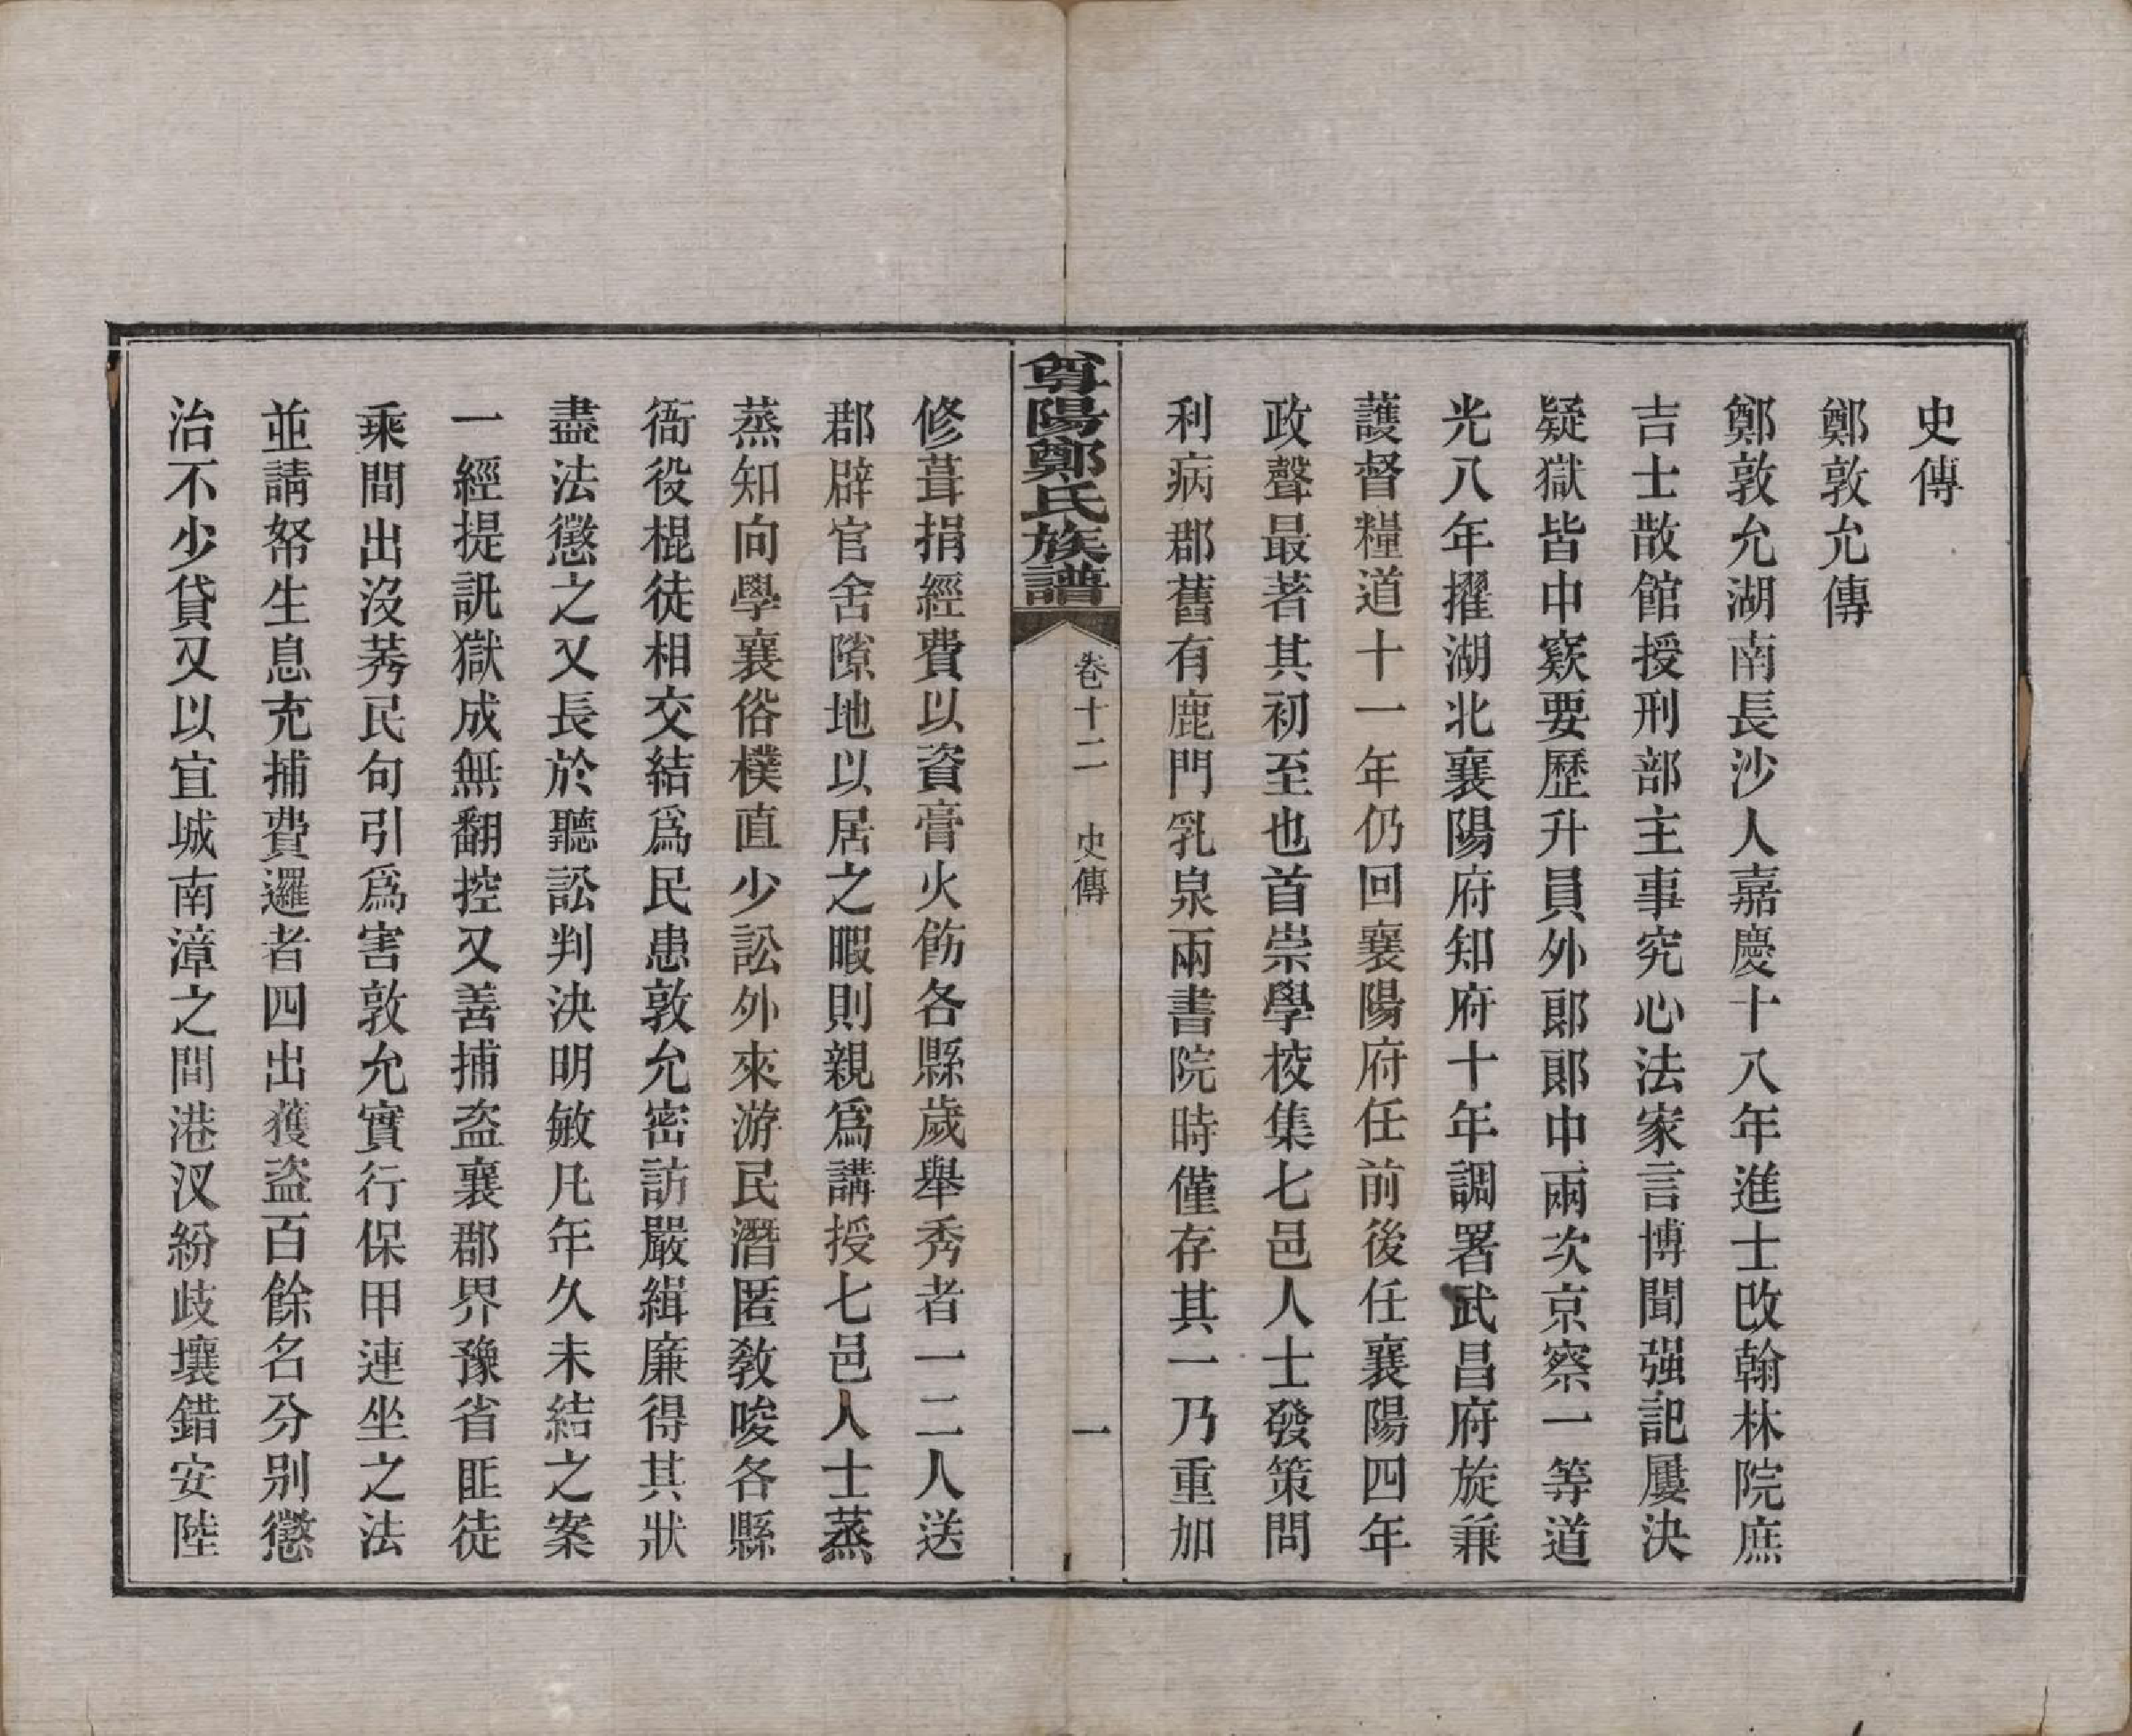 史傳
鄭敦允傳
鄭敦允湖南長沙人嘉慶十八年進士改翰林院庶
吉士散館授刑部主事究心法家言博聞强記屢決
疑獄皆中窾要歷升員外郞郞中兩次京察一等道
光八年擢湖北襄陽府知府十年調署武昌府旋兼
護督糧道十一年仍回襄陽府任前後任襄陽四年
政聲最著其初至也首崇學校集七邑人士發策問
利病郡舊有鹿門乳泉兩書院時僅存其一乃重加
尊陽鄭氏族譜 卷十二 史傳 一
修葺捐經費以資膏火飭各縣歲舉秀者一二人送
郡辟官舍隙地以居之暇則親爲講授七邑人士蒸
蒸知向學襄俗樸直少訟外來游民潛匿敎唆各縣
衙役棍徒相交結爲民患敦允密訪嚴緝廉得其狀
盡法懲之又長於聽訟判決明敏凡年久未結之案
一經提訊獄成無翻控又善捕盗襄郡界豫省匪徒
乘間出沒莠民句引爲害敦允實行保甲連坐之法
並請帑生息充捕費邏者四出獲盗百餘名分別懲
治不少貸又以宜城南漳之間港汊紛歧壤錯安陸